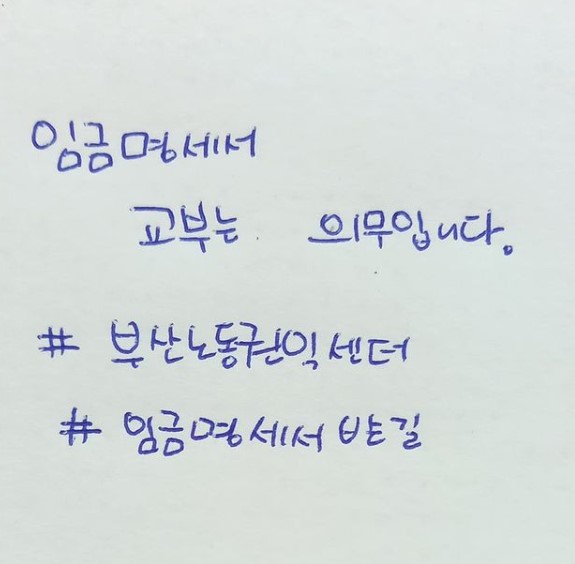 임금명세서
교부는 의무입니다.
# 부산노동권익센터
# 임금명세서 받길